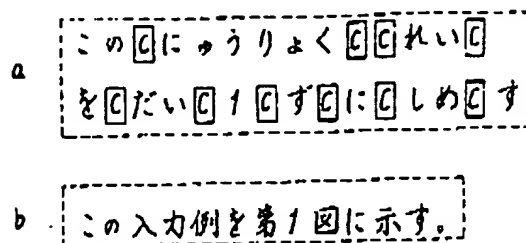 a
この[C]にゅうりょく[C][C]れい[C]
を[C]だい[C]1[C]ず[C]に[C]しめ[C]す
b
この入力例を第1図に示す。